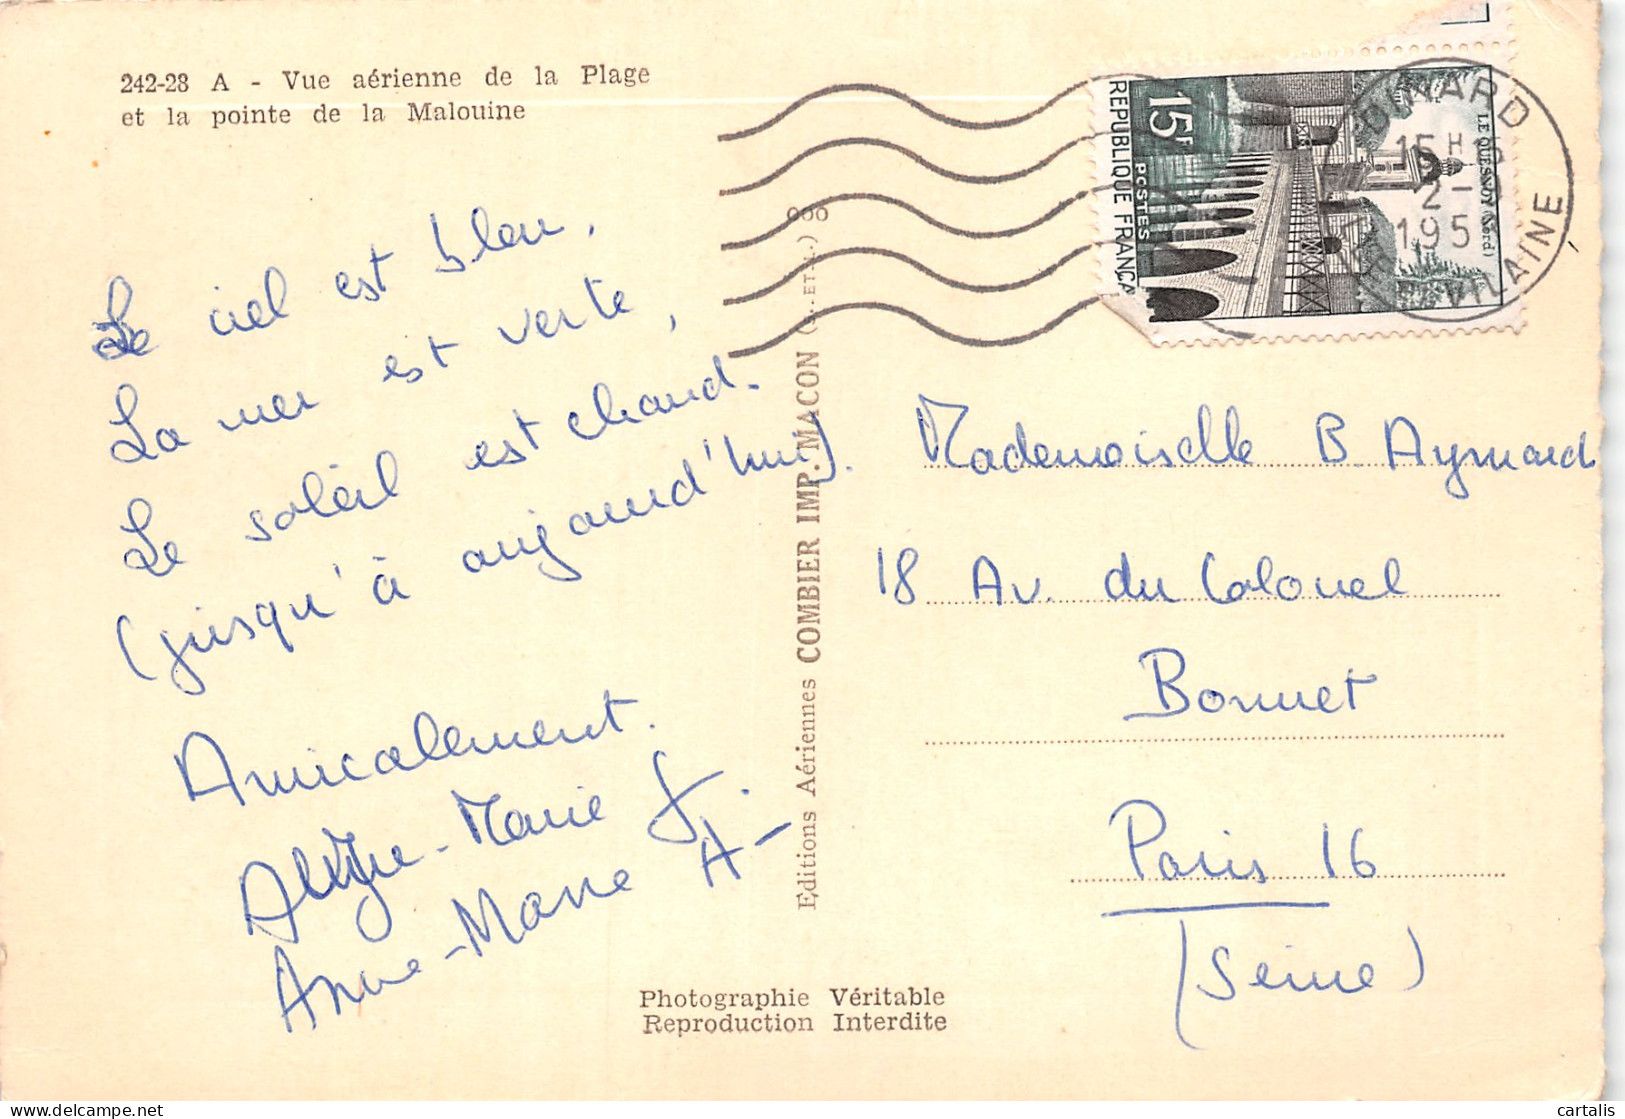 242-28 A - Vue aérienne de la Plage
et la pointe de la Malouine
Le ciel est bleu,
La mer est verte,
Le soleil est chaud.
(jusqu'à aujourd'hui).
Amicalement.
Marie J.
Anne-Marie A-
Editions Aériennes COMBIER IMP. MACON
000
15F
POSTES
REPUBLIQUE FRANÇA
LE QUESNOY (Nord)
DINARD
15H15
195
VILAINE
Mademoiselle B. Aymard
18 Av. du Colonel
Bonnet
Paris 16
(Seine)
Photographie Véritable
Reproduction Interdite
cartalis
delcampe.net